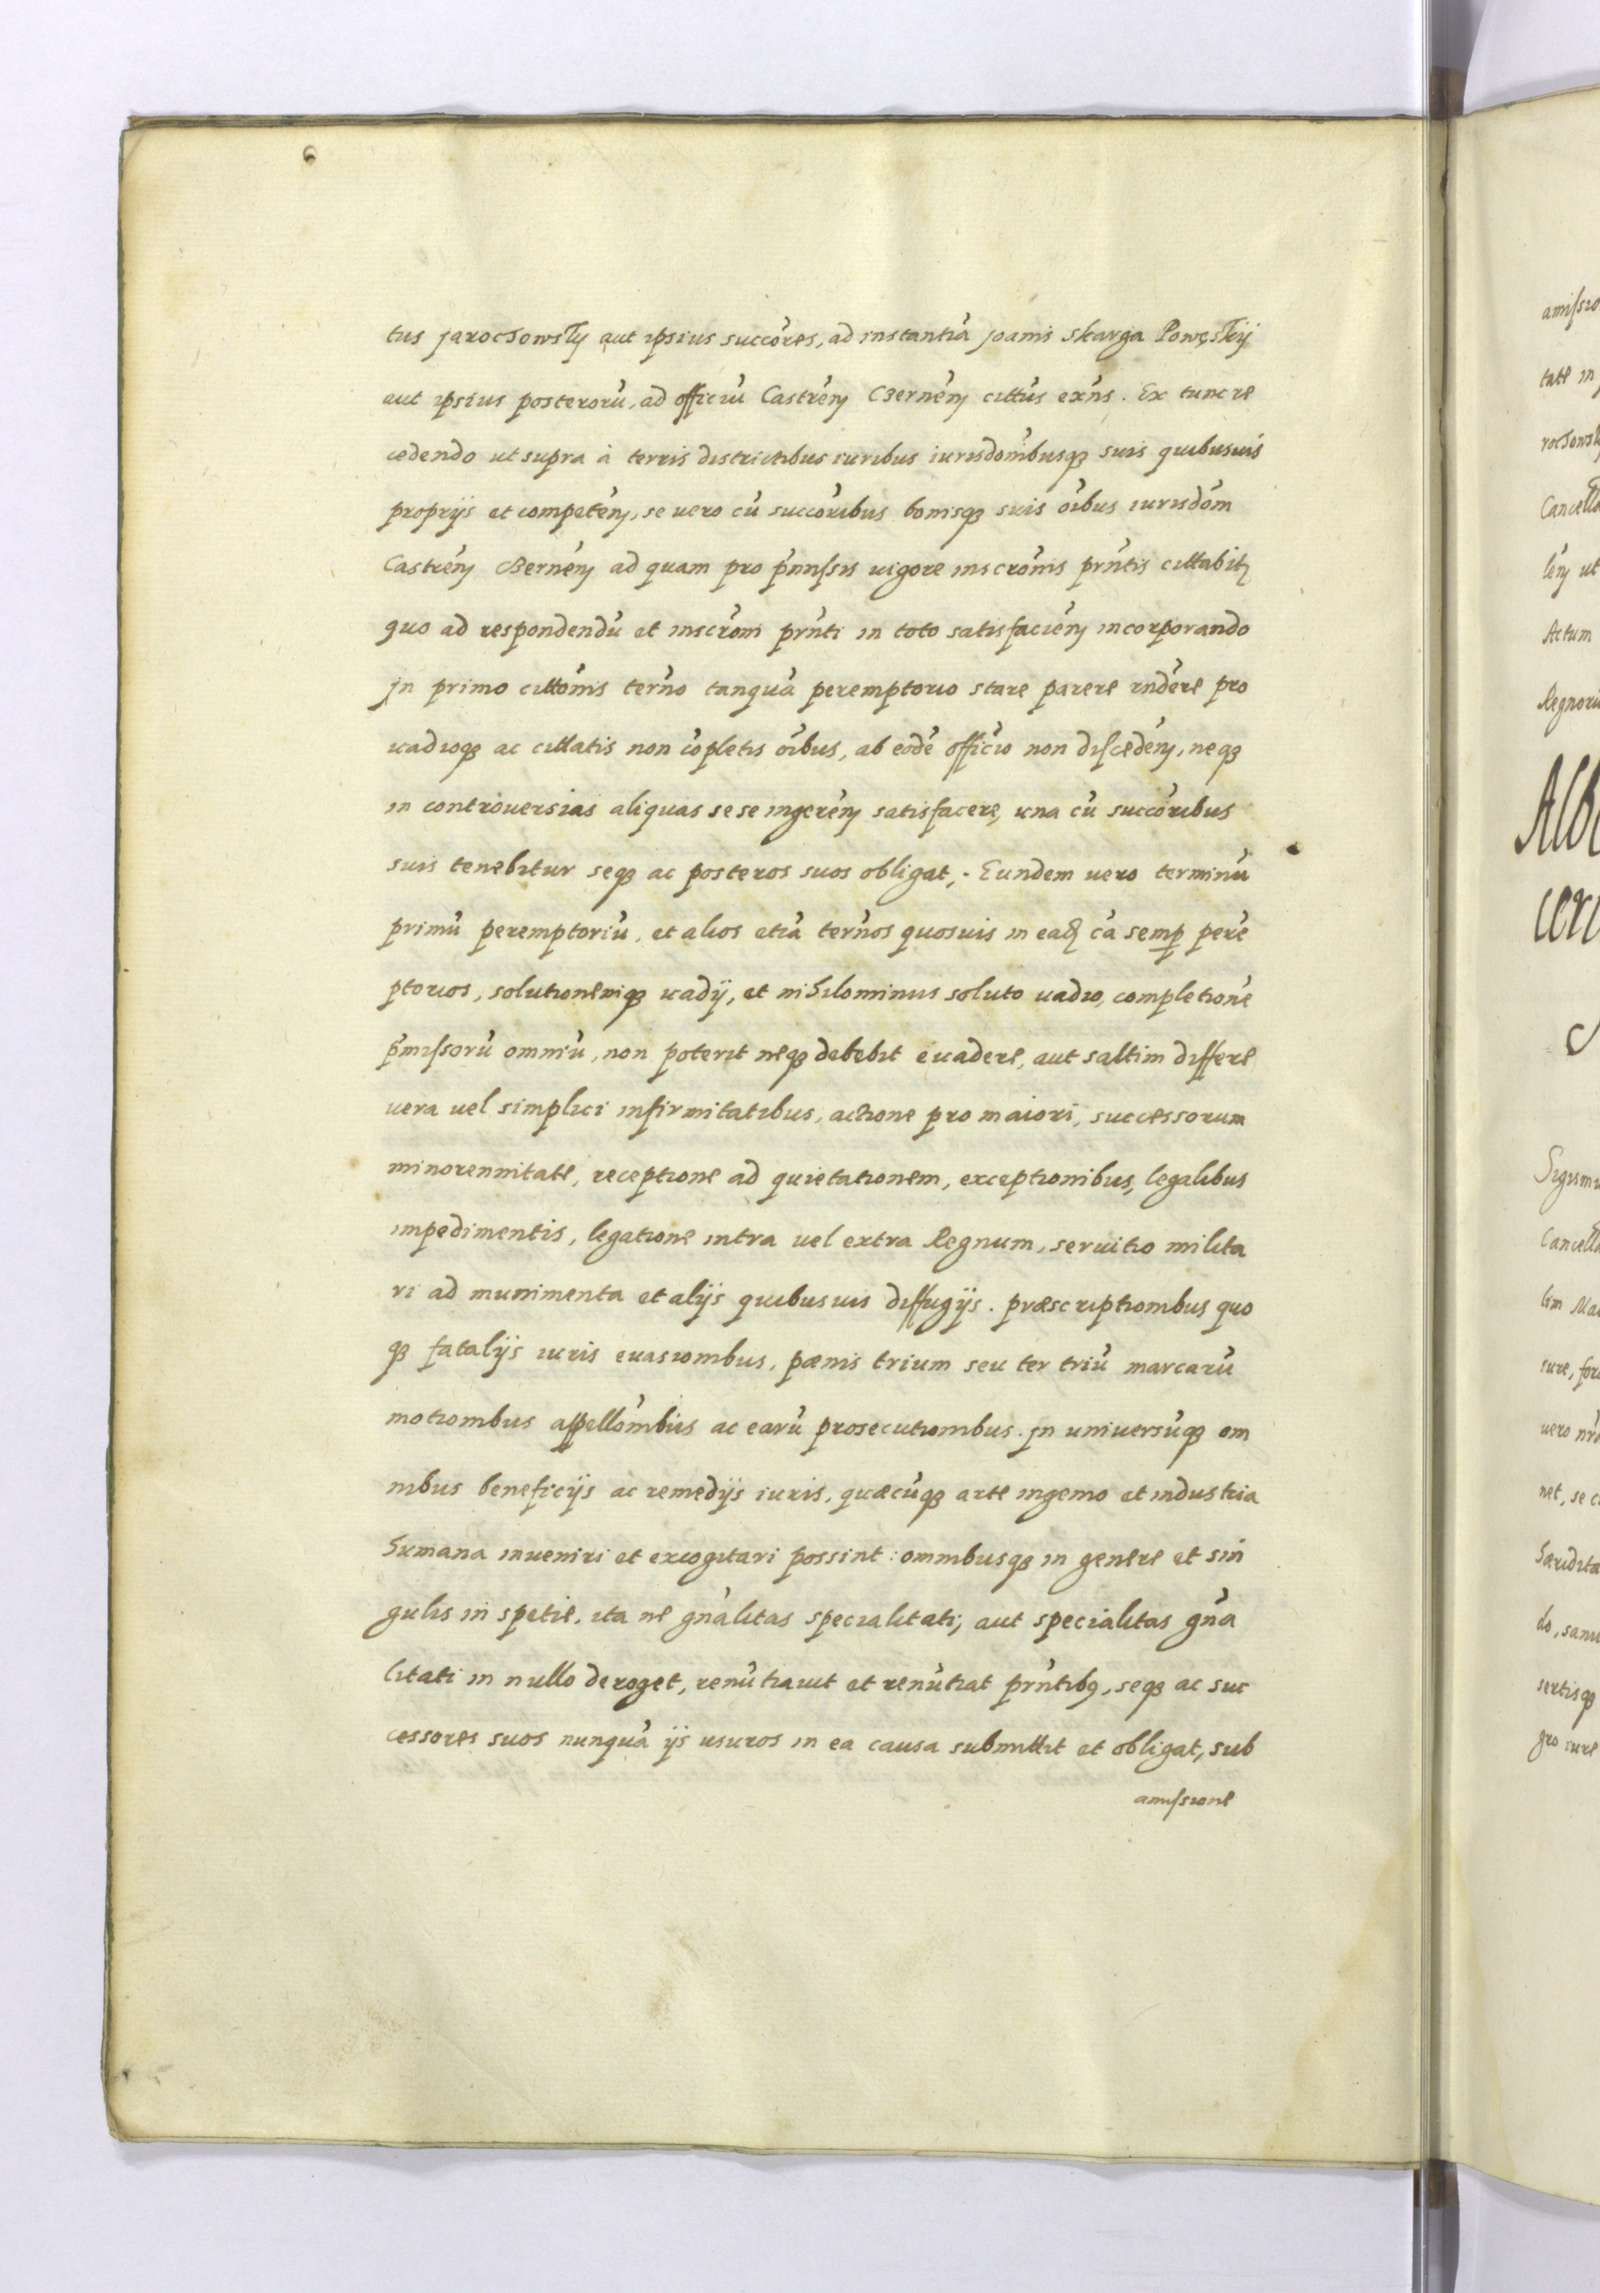 6
tus Jarochowsky aut ipsius succores, ad instantiã Joanis Skarga Powęskij
aut ipsius posterorũ, ad officiũ Castreñ Cerneñ cittũs exñs. Ex tunc re
cedendo ut supra à terris districtibus iuribus iurisdõnibusq3 suis quibusuis
proprijs et competeñ, se uero cũ succoribus bonisq3 suis oĩbus iurisdõni
Castreñ Berneñ ad quam pro pm̃issis uigore inscrõnis prñtis cittabit̃
quo ad respondendũ et inscrõni prñti in toto satisfacieñ incorporando
Jn primo cittõnis terño tanquã peremptorio stare parere rñdere pro
uadioq3 ac cittatis non cõpletis oĩbus, ab eodẽ officio non discedeñ, neq3
in controuersias aliquas sese ingereñ satisfacere, una cũ succoribus
suis tenebitur seq3 ac posteros suos obligat, . Eundem uero terminũ
primũ peremptoriũ, et alios etiã terños quosuis in ead cã semp perẽ
ptorios, solutionemq3 uadij, et nihilominus soluto uadio, completionẽ
pm̃issorũ omniũ, non poterit neq3 debebit euadere, aut saltim differe
uera uel simplici infirmitatibus, actione pro maiori, successorum
minorennitate, receptione ad quietationem, exceptionibus, legalibus
impedimentis, legatione intra uel extra Regnum, seruitio milita
ri ad munimenta et alijs quibusuis diffugijs. præscriptionibus quo
q3 fatalijs iuris euasionibus, pænis trium seu ter triũ marcarũ
motionibus appellõnibus ac earũ prosecutionibus. Jn uniuersũq3 om
nibus beneficijs ac remedijs iuris, quæcũq3 arte ingenio et industria
humana inueniri et excogitari possint: omnibusq3 in genere et sin
gulis in spetie, ita ne gñalitas specialitati, aut specialitas gña
litati in nullo deroget, renũtiauit et renũtiat prñtibꝰ, seq3 ac suc
cessores suos nunquã ijs usuros in ea causa submittit et obligat, sub
amissione